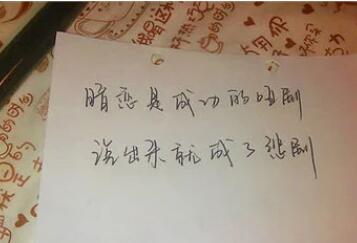 暗恋是成功的哑剧
说出来就成了悲剧